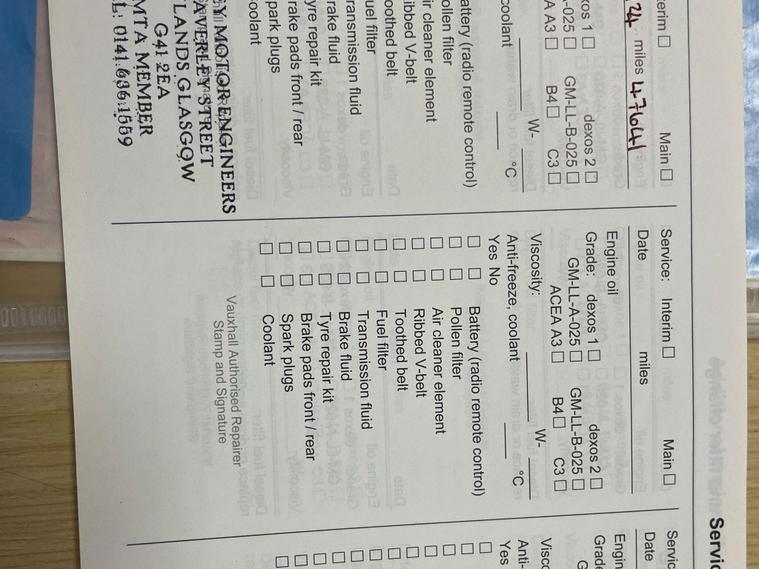 Service
nterim □ Main □
24 miles 47641
xos 1 □ dexos 2 □
-025 □ GM-LL-B-025 □
A A3 □ B4 □ C3 □
W-
coolant °C
attery (radio remote control)
ollen filter
ir cleaner element
ibbed V-belt
oothed belt
uel filter
ransmission fluid
rake fluid
yre repair kit
rake pads front / rear
park plugs
oolant
Y MOTOR ENGINEERS
AVERLEY STREET
LANDS GLASGOW
G41 2EA
MTA MEMBER
L: 0141.636.1559
Service: Interim □ Main □
Date miles
Engine oil
Grade: dexos 1 □ dexos 2 □
GM-LL-A-025 □ GM-LL-B-025 □
ACEA A3 □ B4 □ C3 □
Viscosity: W-
Anti-freeze, coolant °C
Yes No
□ □ Battery (radio remote control)
□ □ Pollen filter
□ □ Air cleaner element
□ □ Ribbed V-belt
□ □ Toothed belt
□ □ Fuel filter
□ □ Transmission fluid
□ □ Brake fluid
□ □ Tyre repair kit
□ □ Brake pads front / rear
□ □ Spark plugs
□ □ Coolant
Vauxhall Authorised Repairer
Stamp and Signature
Servic
Date
Engin
Grade
G
Visco
Anti-
Yes